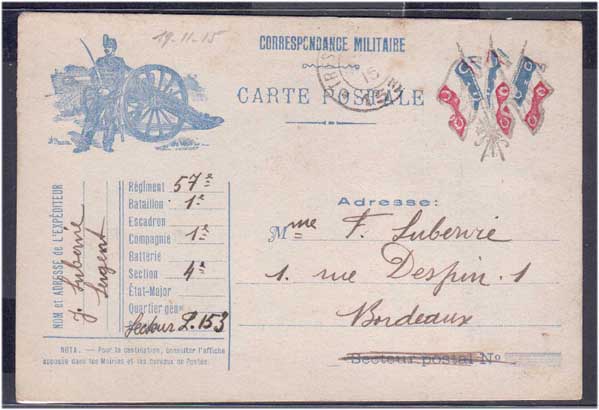 19-11-15
CORRESPONDANCE MILITAIRE
CARTE POSTALE
NOM et ADRESSE de L'EXPÉDITEUR
J. Luberrie
Sergent
Régiment 57e
Bataillon 1e
Escadron
Compagnie 1e
Batterie
Section 4e
État-Major
Quartier génal
Secteur P. 153
NOTA. — Pour la destination, consulter l'affiche
apposée dans les Mairies et les Bureaux de Postes.
Adresse:
Mme F. Luberrie
1. rue Despin. 1
Bordeaux
Secteur postal No